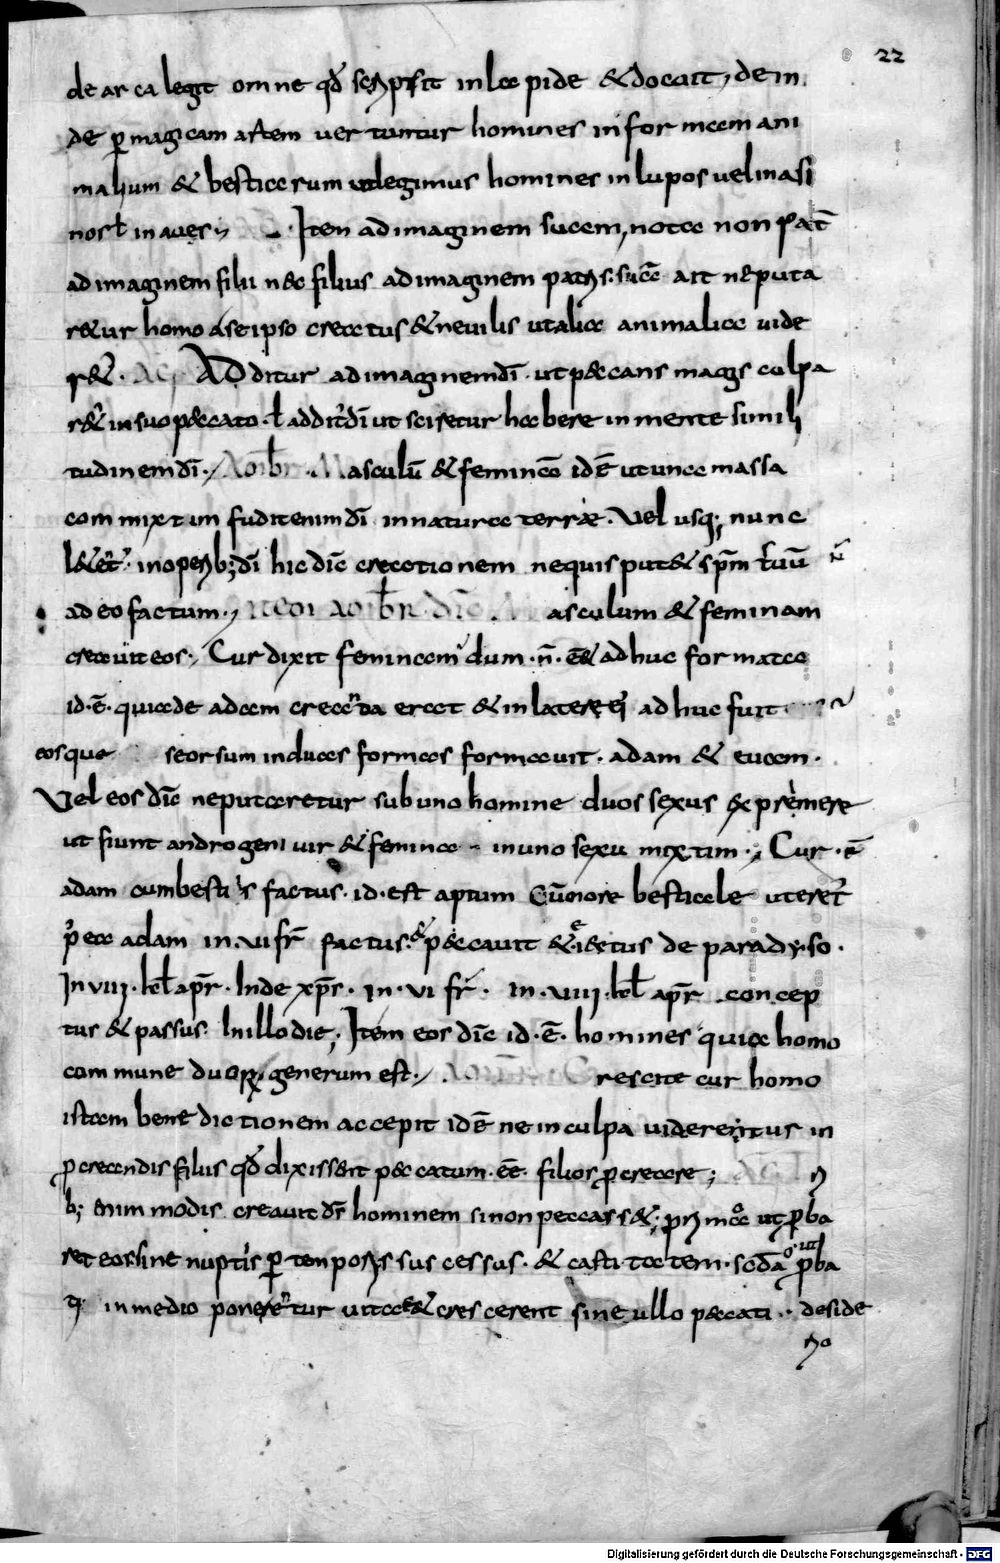 22
de arca legit omne qđ scripsit in lapide & docuit, dein
de ꝑ magicam artem vertuntur homines in formam ani
malium & bestiarum ut legimus homines in lupos vel in asi
nos ł in aues
Item ad imaginem suam, nota non
ad imaginem filii nec filius ad imaginem patris. suā ait ne puta
r&ur homo a se ipso creatus & ne uilis ut alia animalia uide
r&. Additur ad imaginem dī. ut peccans magis culpa
r& in suo peccato. ł addit dī ut sciretur habere in mente simili
tudinem dī. Masculū & feminā idē ut una massa
commixtim fudit enim dī in natura terrae. Vel usq; nunc
in operib; dī hic dic creationem nequis put& spm
ab eo factum. masculum & feminam
creauit eos. Cur dixit feminam dum .n̄. ee adhuc formata
id .ē. quia de adam creanda erat & in latere ei adhuc fuit
eosque seorsum in duas formas formauit. adam & euam.
Vel eos dic ne putaretur sub uno homine duos sexus exprimere
ut fiunt androgeni uir & femina in uno sexu mixtim. Cur .ē.
adam cum bestiis factus. id. est aptum
adam in .vi fr̄ factus. & peccauit & eiectus de paradyso.
In viii. kł apr̄. Inde xps. in. vi fr̄. in. viiii. kł apr̄ concep
tus & passus. In illo die, Item eos dic id .ē. homines quia homo
commune duorum generum est. crescite cur homo
istam benedictionem accepit idē ne in culpa viderentur in
procreandis filiis qđ dixissent peccatum .ee. filios procreare;
b; enim modis creauit ds hominem si non peccass&;
ret eos sine nuptiis ꝑ temporis successus. & castitatem.
in medio poneretur uitae & crescerent sine ullo peccati. deside
rio
Digitalisierung gefördert durch die Deutsche Forschungsgemeinschaft - DFG